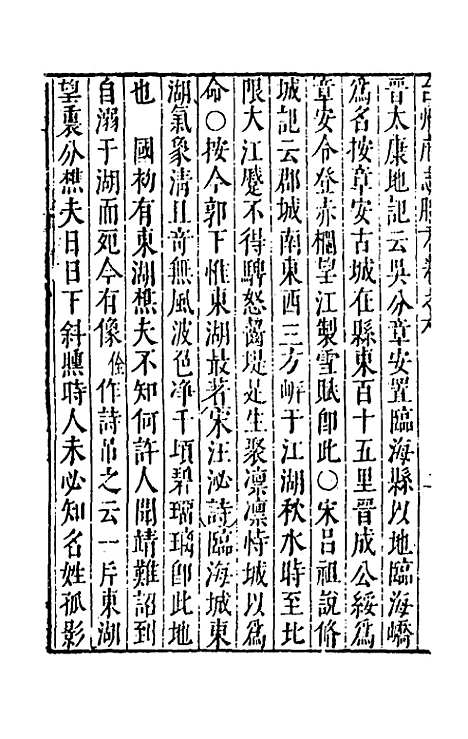 晉太康地記云吳分章安置臨海縣以地臨海嶠
爲名按章安古城在縣東百十五里晉成公綏爲
章安令登赤欄望江製雪賦卽此○宋呂祖說脩
城記云郡城南東西三方嶭于江湖秋水時至北
限大江蹙不得騁怒齧堤是生聚凜凜恃城以爲
命○按今郭下惟東湖最著宋汪泌詩臨海城東
湖氣象淸且竒無風波色净千頃碧璃璃卽此地
也　國初有東湖樵夫不知何許人聞靖難詔到
自溺于湖而死今有像佺作詩吊之云一片東湖
望裏分樵夫日日下斜曛時人未必知名姓孤影